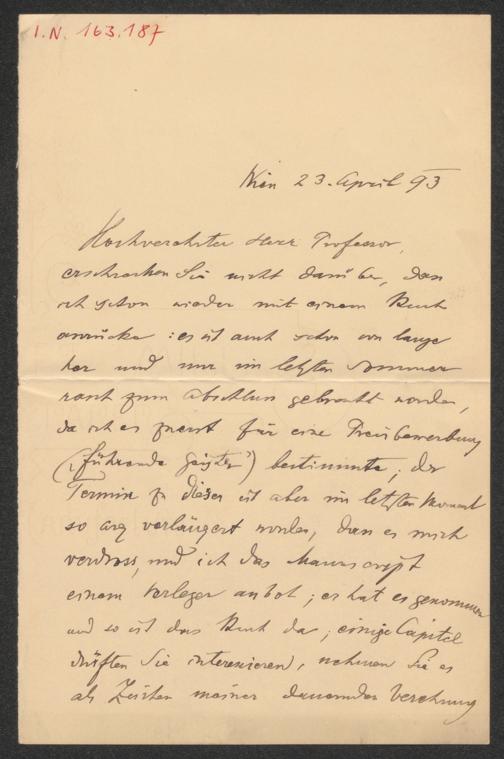 I.N. 163.187
Wien 23. April 93
Hochverehrter Herr Professor,
erschrecken Sie nicht darüber, dass
ich schon wieder mit einem Buch
anrücke: es ist auch schon von lange
her und nur im letzten Sommer
rasch zum Abschluss gebracht worden,
da ich es zuerst für eine Preisbewerbung
("führende Geister") bestimmte; der
Termin zu dieser ist aber im letzten Moment
so arg verlängert worden, dass es mich
verdross, und ich das Manuscript
einem Verleger anbot; er hat es genommen
und so ist das Buch da; einige Capitel
dürften Sie interessieren, nehmen Sie es
als Zeichen meiner dauernden Verehrung